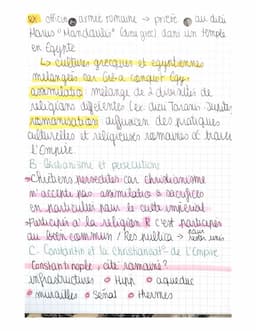 ex officier armée romaine → prière au dieu
Harus "Mandaulis" (dieu grec) dans un temple
en Egypte
↳ cultures grecques et egyptiennes
mélangées car Grèce conquet Egy.
assimilation mélange de 2 divinités de
religions différentes (ex dieu Taranis Jupiter
romanisation diffusion des pratiques
culturelles et religieuses romaines à travers
l'Empire.
B- Christianisme et persécutions
→ Chrétiens persecutés car christianisme
n'accepte pas assimilation & sacrifices
en particulier pour le culte impérial
→ Participer à la religion R c'est participer
au bien commun / Res publica → pour rester unis
C- Constantin et la christianisat° de l'Empire
Constantinople, cité romaine?
infrastructures o Hipp o aqueduc
o murailles o Sénat o thermes